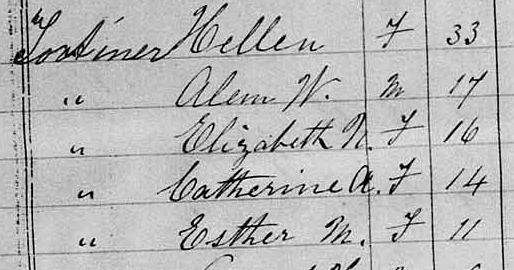 Hellen F 33
" Alem W. M 17
" Elizabeth N. F 16
" Catherine A. F 14
" Esther M. F 11